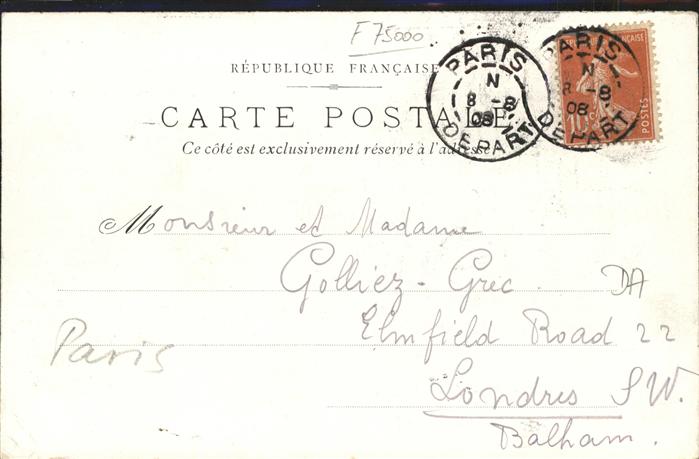 F 75000
RÉPUBLIQUE FRANÇAISE
CARTE POSTALE
Ce côté est exclusivement réservé à l'adresse
PARIS
N
8 -8
08
DEPART
PARIS
N
8 -8
08
DEPART
FRANÇAISE
POSTES
10 c
Monsieur et Madame
Golliez-Grec
DA
Elmfield Road 22
Paris
Londres SW.
Balham.